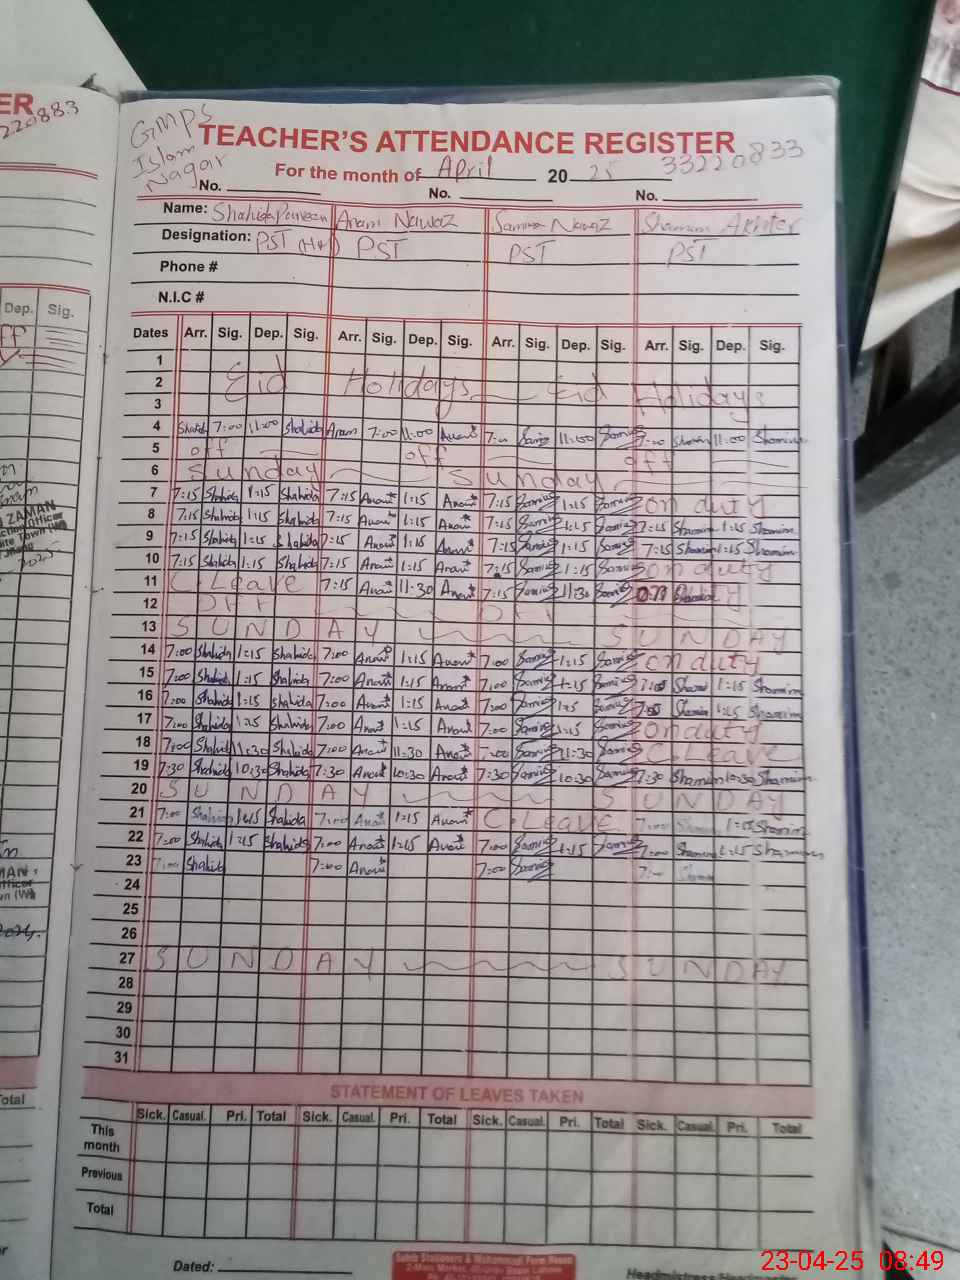 ER
GMPS
220883
TEACHER'S ATTENDANCE REGISTER
Islam
Nagar
For the month of April 20 25 33220833
No. No. No.
Name: Shahida Parveen Anam Nawaz Samina Nawaz Shamim Akhter
Designation: PST PST PST PST
Phone #
N.I.C #
Dep. Sig.
Dates Arr. Sig. Dep. Sig. Arr. Sig. Dep. Sig. Arr. Sig. Dep. Sig. Arr. Sig. Dep. Sig.
1
2 Eid Holidays Eid Holidays
3
4 7:00 11:00 Shahida Anam 7:00 11:00 Anam 11:00 7:00 11:00 Shamim
5 off off off
6 Sunday Sunday
7 7:15 Shahida 1:15 Shahida 7:15 Anam 1:15 Anam 7:15 Samina 1:15 Samina on duty
8 7:15 Shahida 1:15 Shahida 7:15 Anam 1:15 Anam 7:15 Samina 1:15 Samina 7:15 Shamim 1:15 Shamim
9 7:15 Shahida 1:15 Shahida 7:15 Anam 1:15 Anam 7:15 Samina 1:15 Samina 7:15 Shamim 1:15 Shamim
10 7:15 Shahida 1:15 Shahida 7:15 Anam 1:15 Anam 7:15 Samina 1:15 Samina on duty
11 C.Leave 7:15 Anam 11:30 Anam 7:15 Samina 11:30 Samina
12 OFF OFF
13 SUNDAY SUNDAY
14 7:00 Shahida 1:15 Shahida 7:00 Anam 1:15 Anam 7:00 Samina 1:15 Samina on duty
15 7:00 Shahida 1:15 Shahida 7:00 Anam 1:15 Anam 7:00 Samina 1:15 Samina 7:00 1:15 Shamim
16 7:00 Shahida 1:15 Shahida 7:00 Anam 1:15 Anam 7:00 Samina Samina Shamim 1:15 Shamim
17 7:00 Shahida 1:15 Shahida 7:00 Anam 1:15 Anam 7:00 Samina 1:15 Samina on duty
18 7:00 Shahida 11:30 Shahida 7:00 Anam 11:30 Anam 7:00 Samina 11:30 Samina C.Leave
19 7:30 Shahida 10:30 Shahida 7:30 Anam 10:30 Anam 7:30 Samina 10:30 Samina 7:30 Shamim 10:30 Shamim
20 SUNDAY SUNDAY
21 7:00 Shahida 1:15 Shahida 7:00 Anam 1:15 Anam C.Leave 7:00 1:15 Shamim
22 7:00 Shahida 1:15 Shahida 7:00 Anam 1:15 Anam 7:00 Samina 1:15 Samina 7:00 Shamim 1:15 Shamim
23 7:00 Shahida 7:00 Anam 7:00 Samina 7:00
24
25
26
27 SUNDAY SUNDAY
28
29
30
31
STATEMENT OF LEAVES TAKEN
Sick. Casual. Pri. Total Sick. Casual. Pri. Total Sick. Casual. Pri. Total Sick. Casual. Pri. Total
This
month
Previous
Total
Dated:
23-04-25 08:49